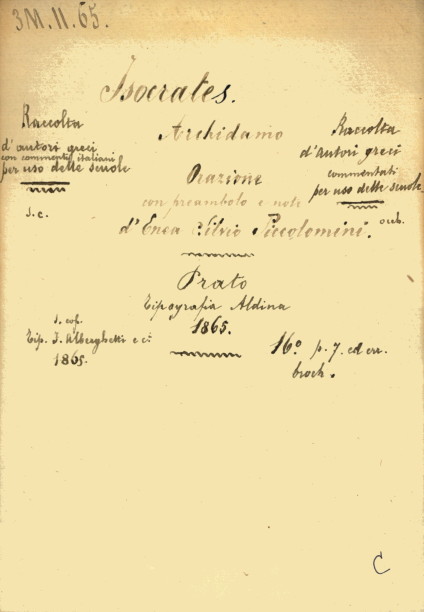 3M.II.65.
Isocrates.
Archidamo
Orazione
con preambolo e note
d'Enea Silvio Piccolomini.
Raccolta
d'autori greci
con commenti italiani
per uso delle scuole
s.c.
Raccolta
d'autori greci
commentati
per uso delle scuole
Prato
Tipografia Aldina
1865.
Tip. F. Alberghetti e c.
1865.
16º p. 7. ed err.
broch.
C